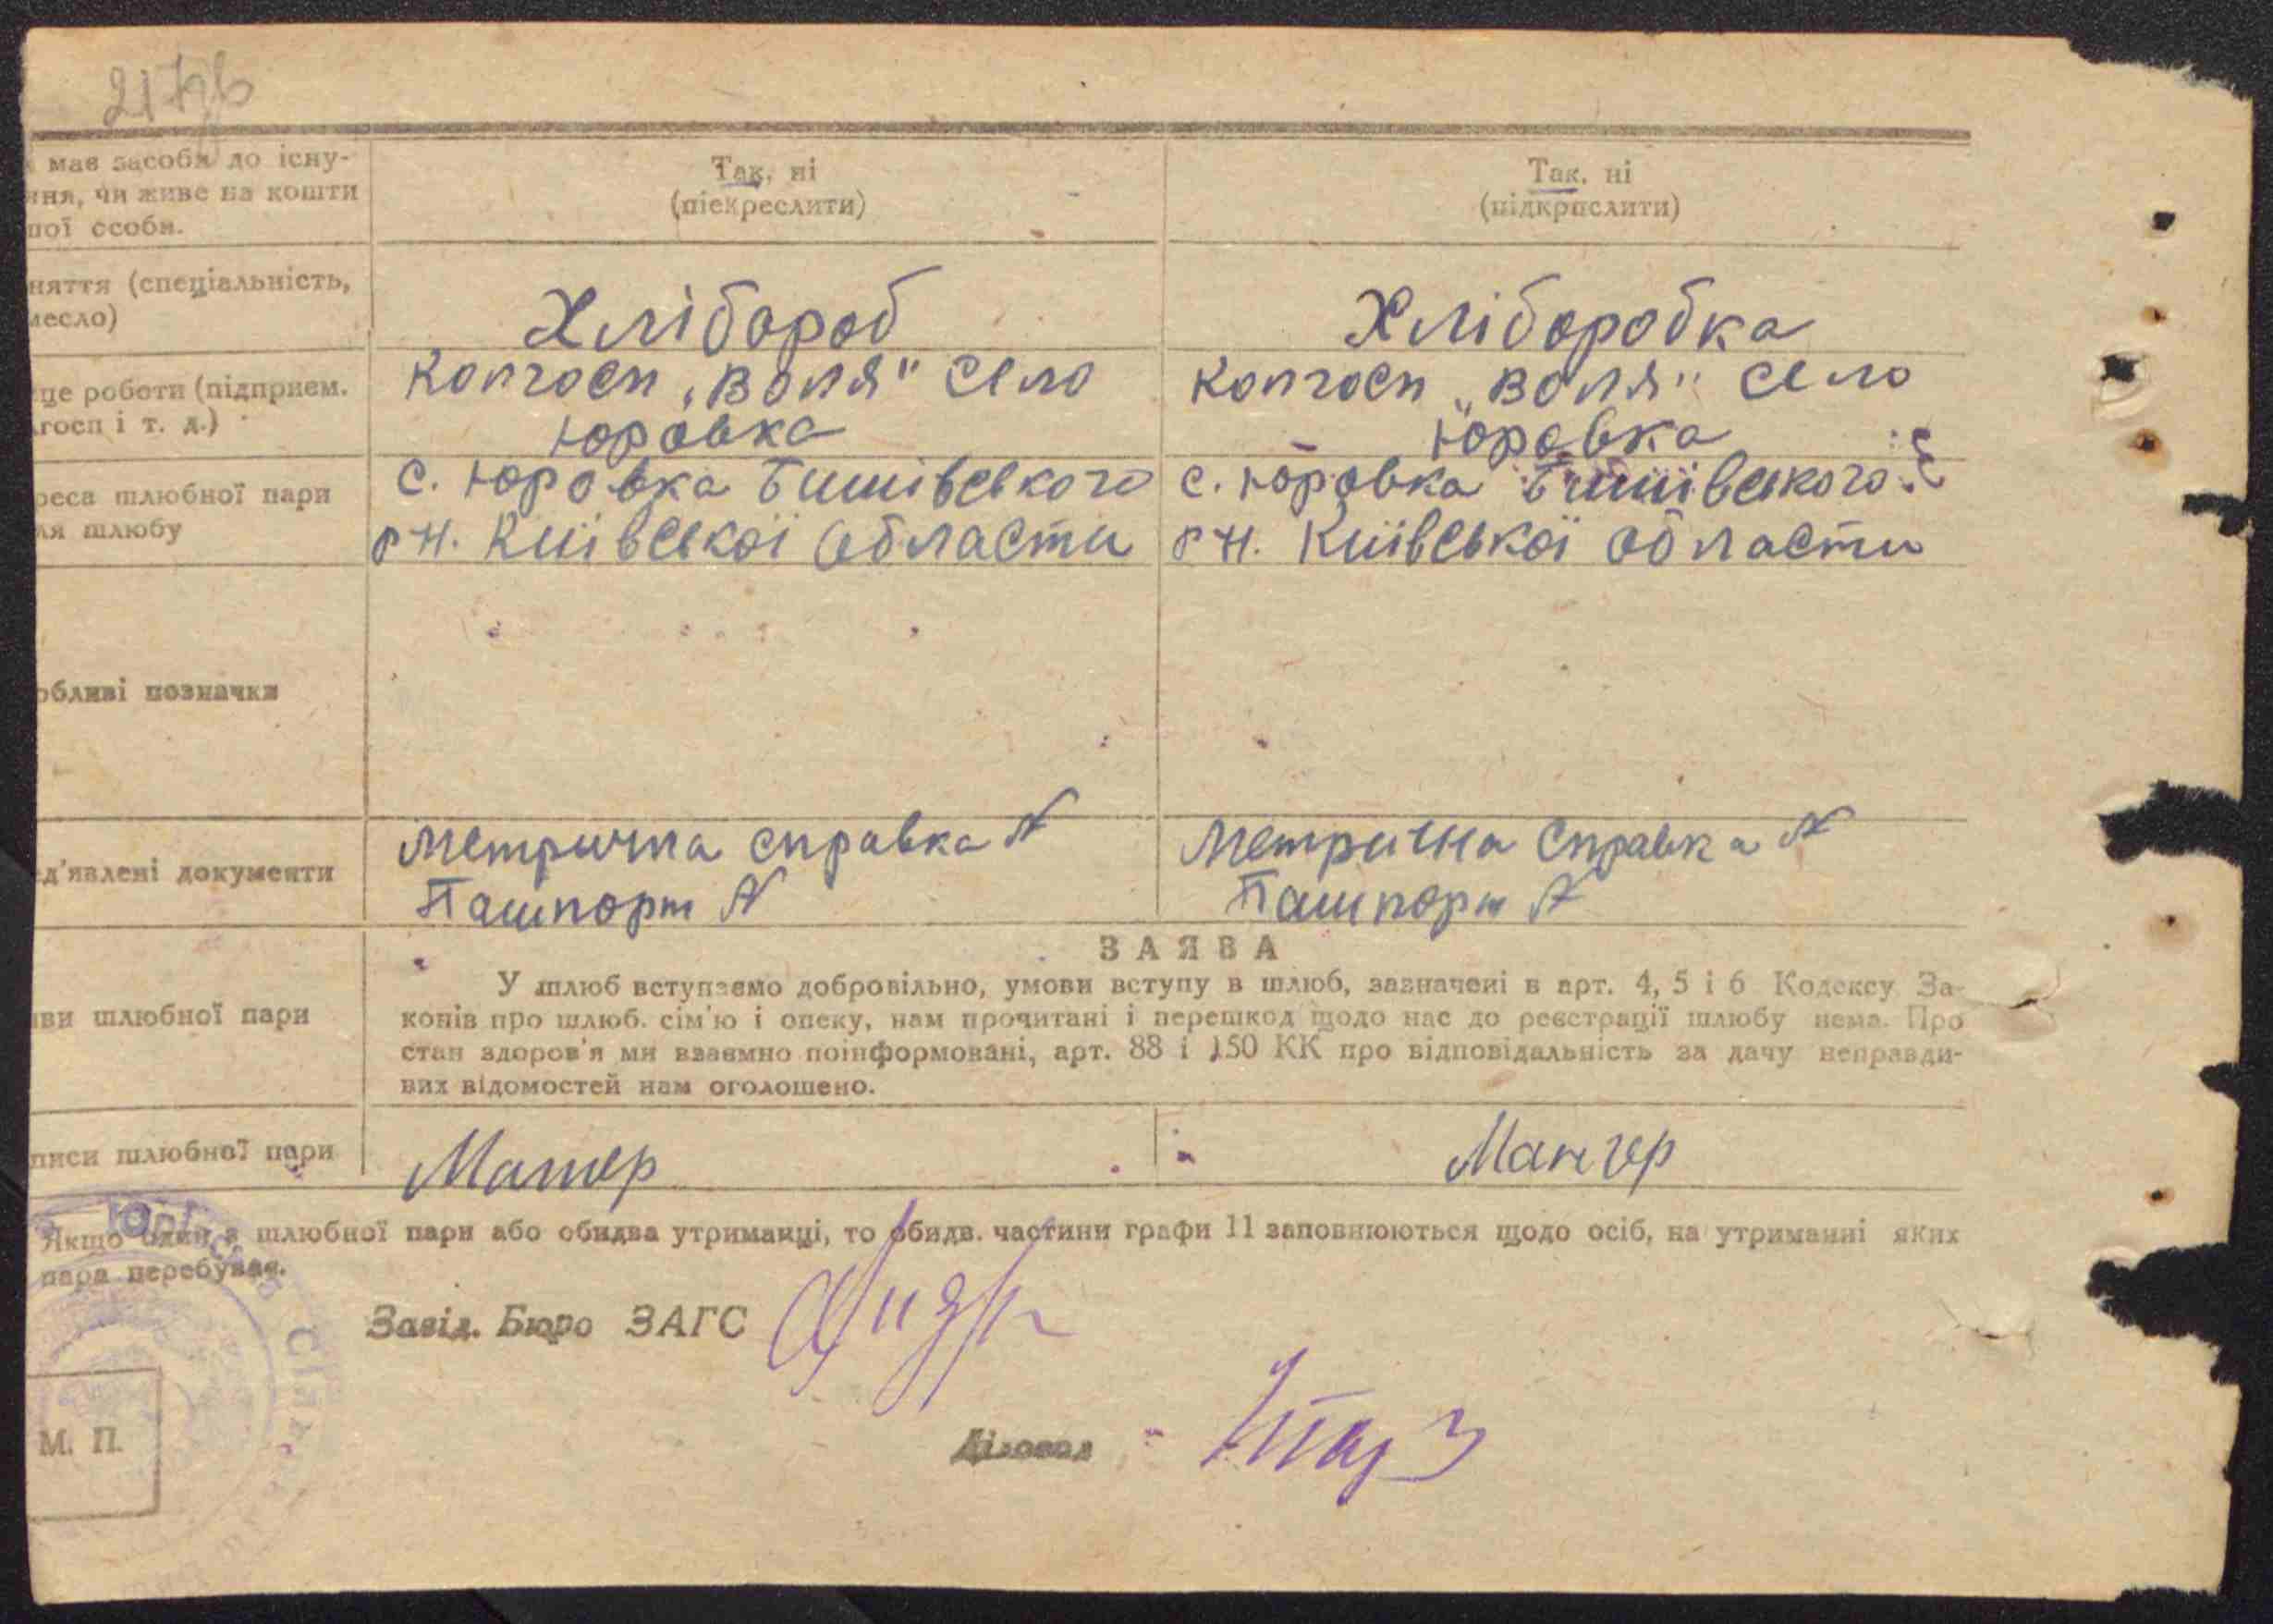 має засоби до існу-
ння, чи живе на кошти
ої особи.
Так, ні
(піекреслити)
Так, ні
(підкрпслити)
няття (спеціальність,
месло)
Хлібороб
Хліборобка
це роботи (підприєм.
госп і т. д.)
Колгосп „Воля" село
Юровка
Колгосп „Воля" село
Юровка
реса шлюбної пари
ля шлюбу
с. Юровка Бишівського
рн. Київської области
с. Юровка Бишівського
рн. Київської области
обливі позначки
д'явлені документи
Метрична справка №
Пашпорт №
Метрична справка №
Пашпорт №
ЗАЯВА
ви шлюбної пари
У шлюб вступаємо добровільно, умови вступу в шлюб, зазначені в арт. 4, 5 і 6 Кодексу За-
конів про шлюб. сім'ю і опеку, нам прочитані і перешкод щодо нас до реєстрації шлюбу нема. Про
стан здоров'я ми взаємно поінформовані, арт. 88 і 150 КК про відповідальність за дачу неправди-
вих відомостей нам оголошено.
писи шлюбної пари
Якщо один з шлюбної пари або обидва утриманці, то обидв. частини графи 11 заповнюються щодо осіб, на утриманні яких
пара перебуває.
Завід. Бюро ЗАГС
Діловод
М. П.